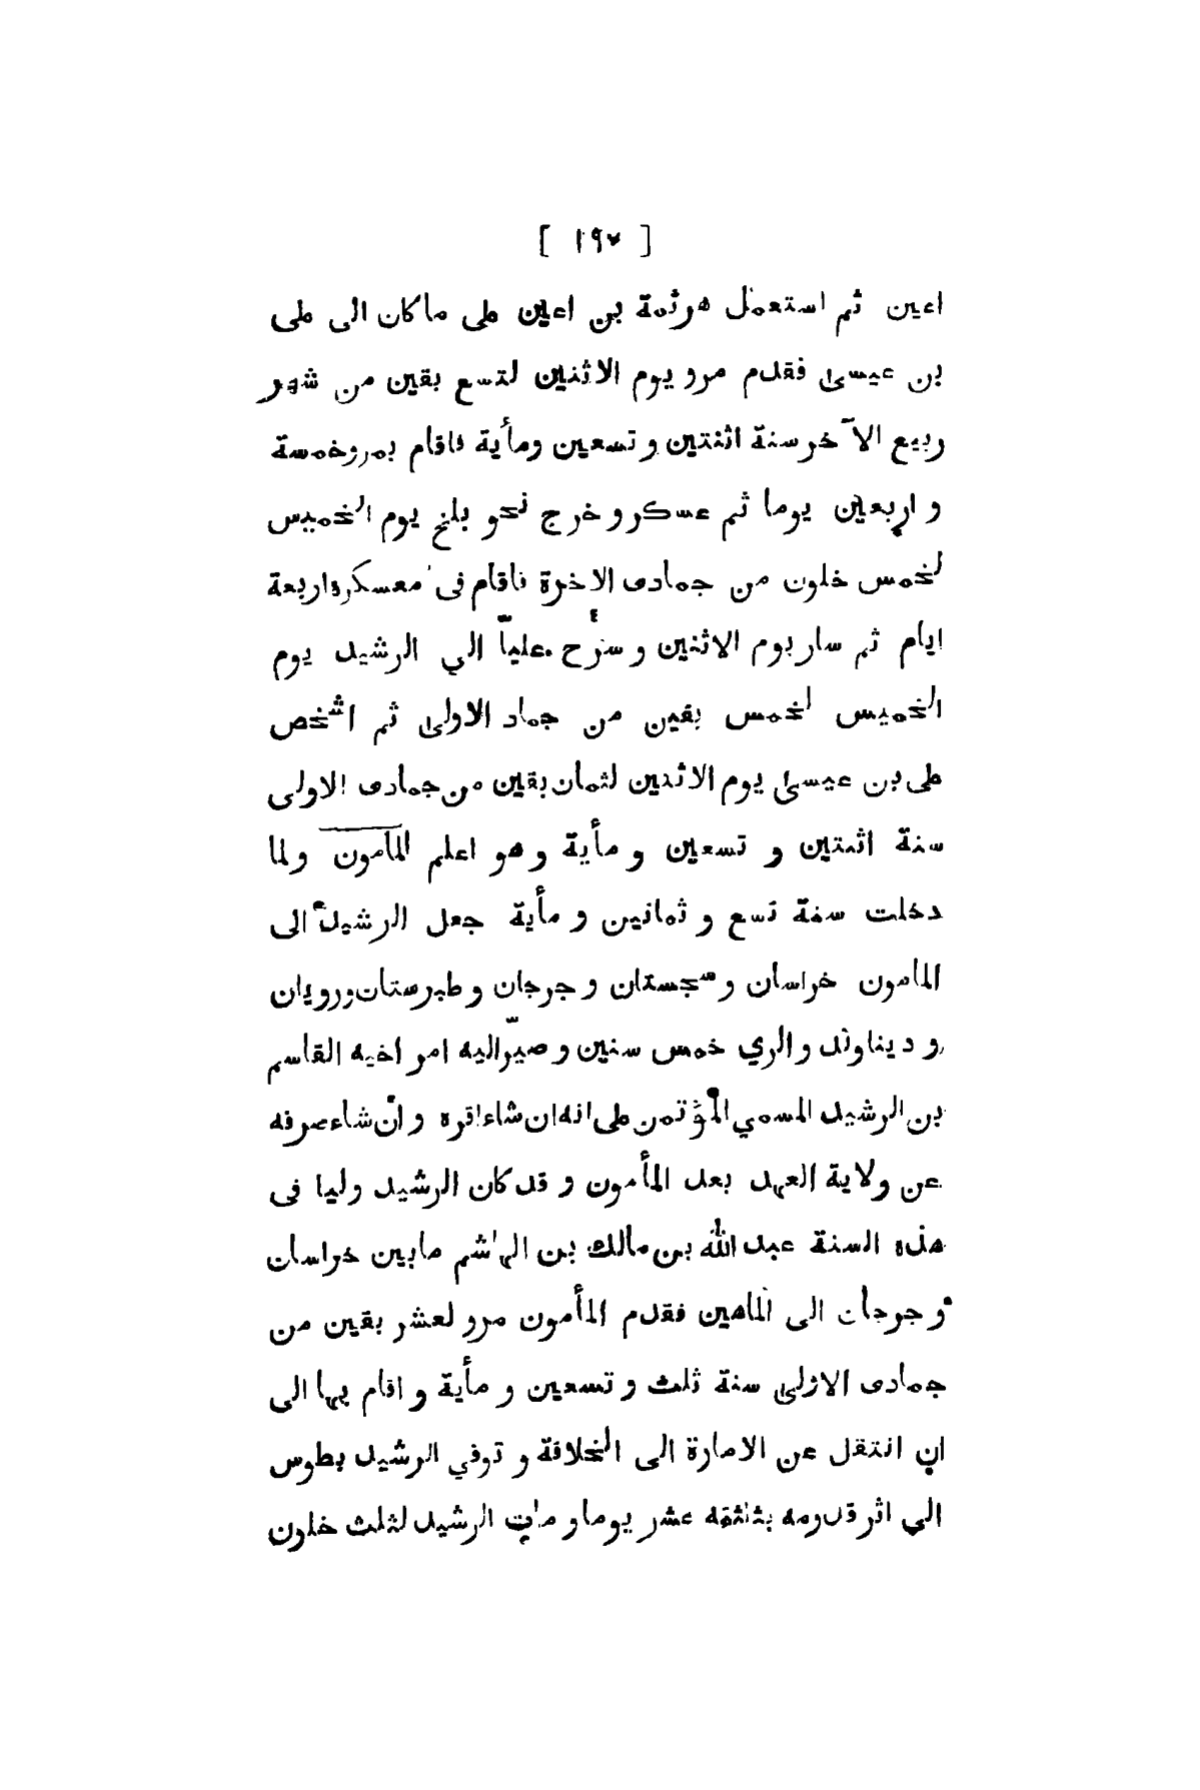 [ ١٩٧ ]
اعين ثم استعمل هرثمة بن اعين علي ما كان الى علي
بن عيسى فقدم مرو يوم الاثنين لتسع بقين من شهر
ربيع الآخر سنة اثنتين و تسعين ومأية فاقام بمرو خمسة
و اربعين يوما ثم عسكر و خرج نحو بلخ يوم الخميس
لخمس خلون من جمادى الاخرة فاقام فى معسكره اربعة
ايام ثم سار يوم الاثنين و سرّح عليّا الي الرشيد يوم
الخميس لخمس بقين من جماد الاولى ثم اشخص
علي بن عيسى يوم الاثنين لثمان بقين من جمادى الاولى
سنة اثنتين و تسعين و مأية و هو اعلم المأمون ولما
دخلت سنة تسع و ثمانين و مأية جعل الرشيد الى
المأمون خراسان و سجستان و جرجان و طبرستان ورويان
و ديناوند و الري خمس سنين و صيّر اليه امر اخيه القاسم
بن الرشيد المسمي المؤتمن علي انه ان شاء اقره و ان شاء صرفه
عن ولاية العهد بعد المأمون و قد كان الرشيد وليا فى
هذه السنة عبد الله بن مالك بن الهاشم ما بين خراسان
و جرجان الى الماهين فقدم المأمون مرو لعشر بقين من
جمادى الاولى سنة ثلث و تسعين و مأية و اقام بها الى
ان انتقل عن الامارة الى الخلافة و توفي الرشيد بطوس
الي اثر قدومه عشر يوما و مات الرشيد لثلث خلون